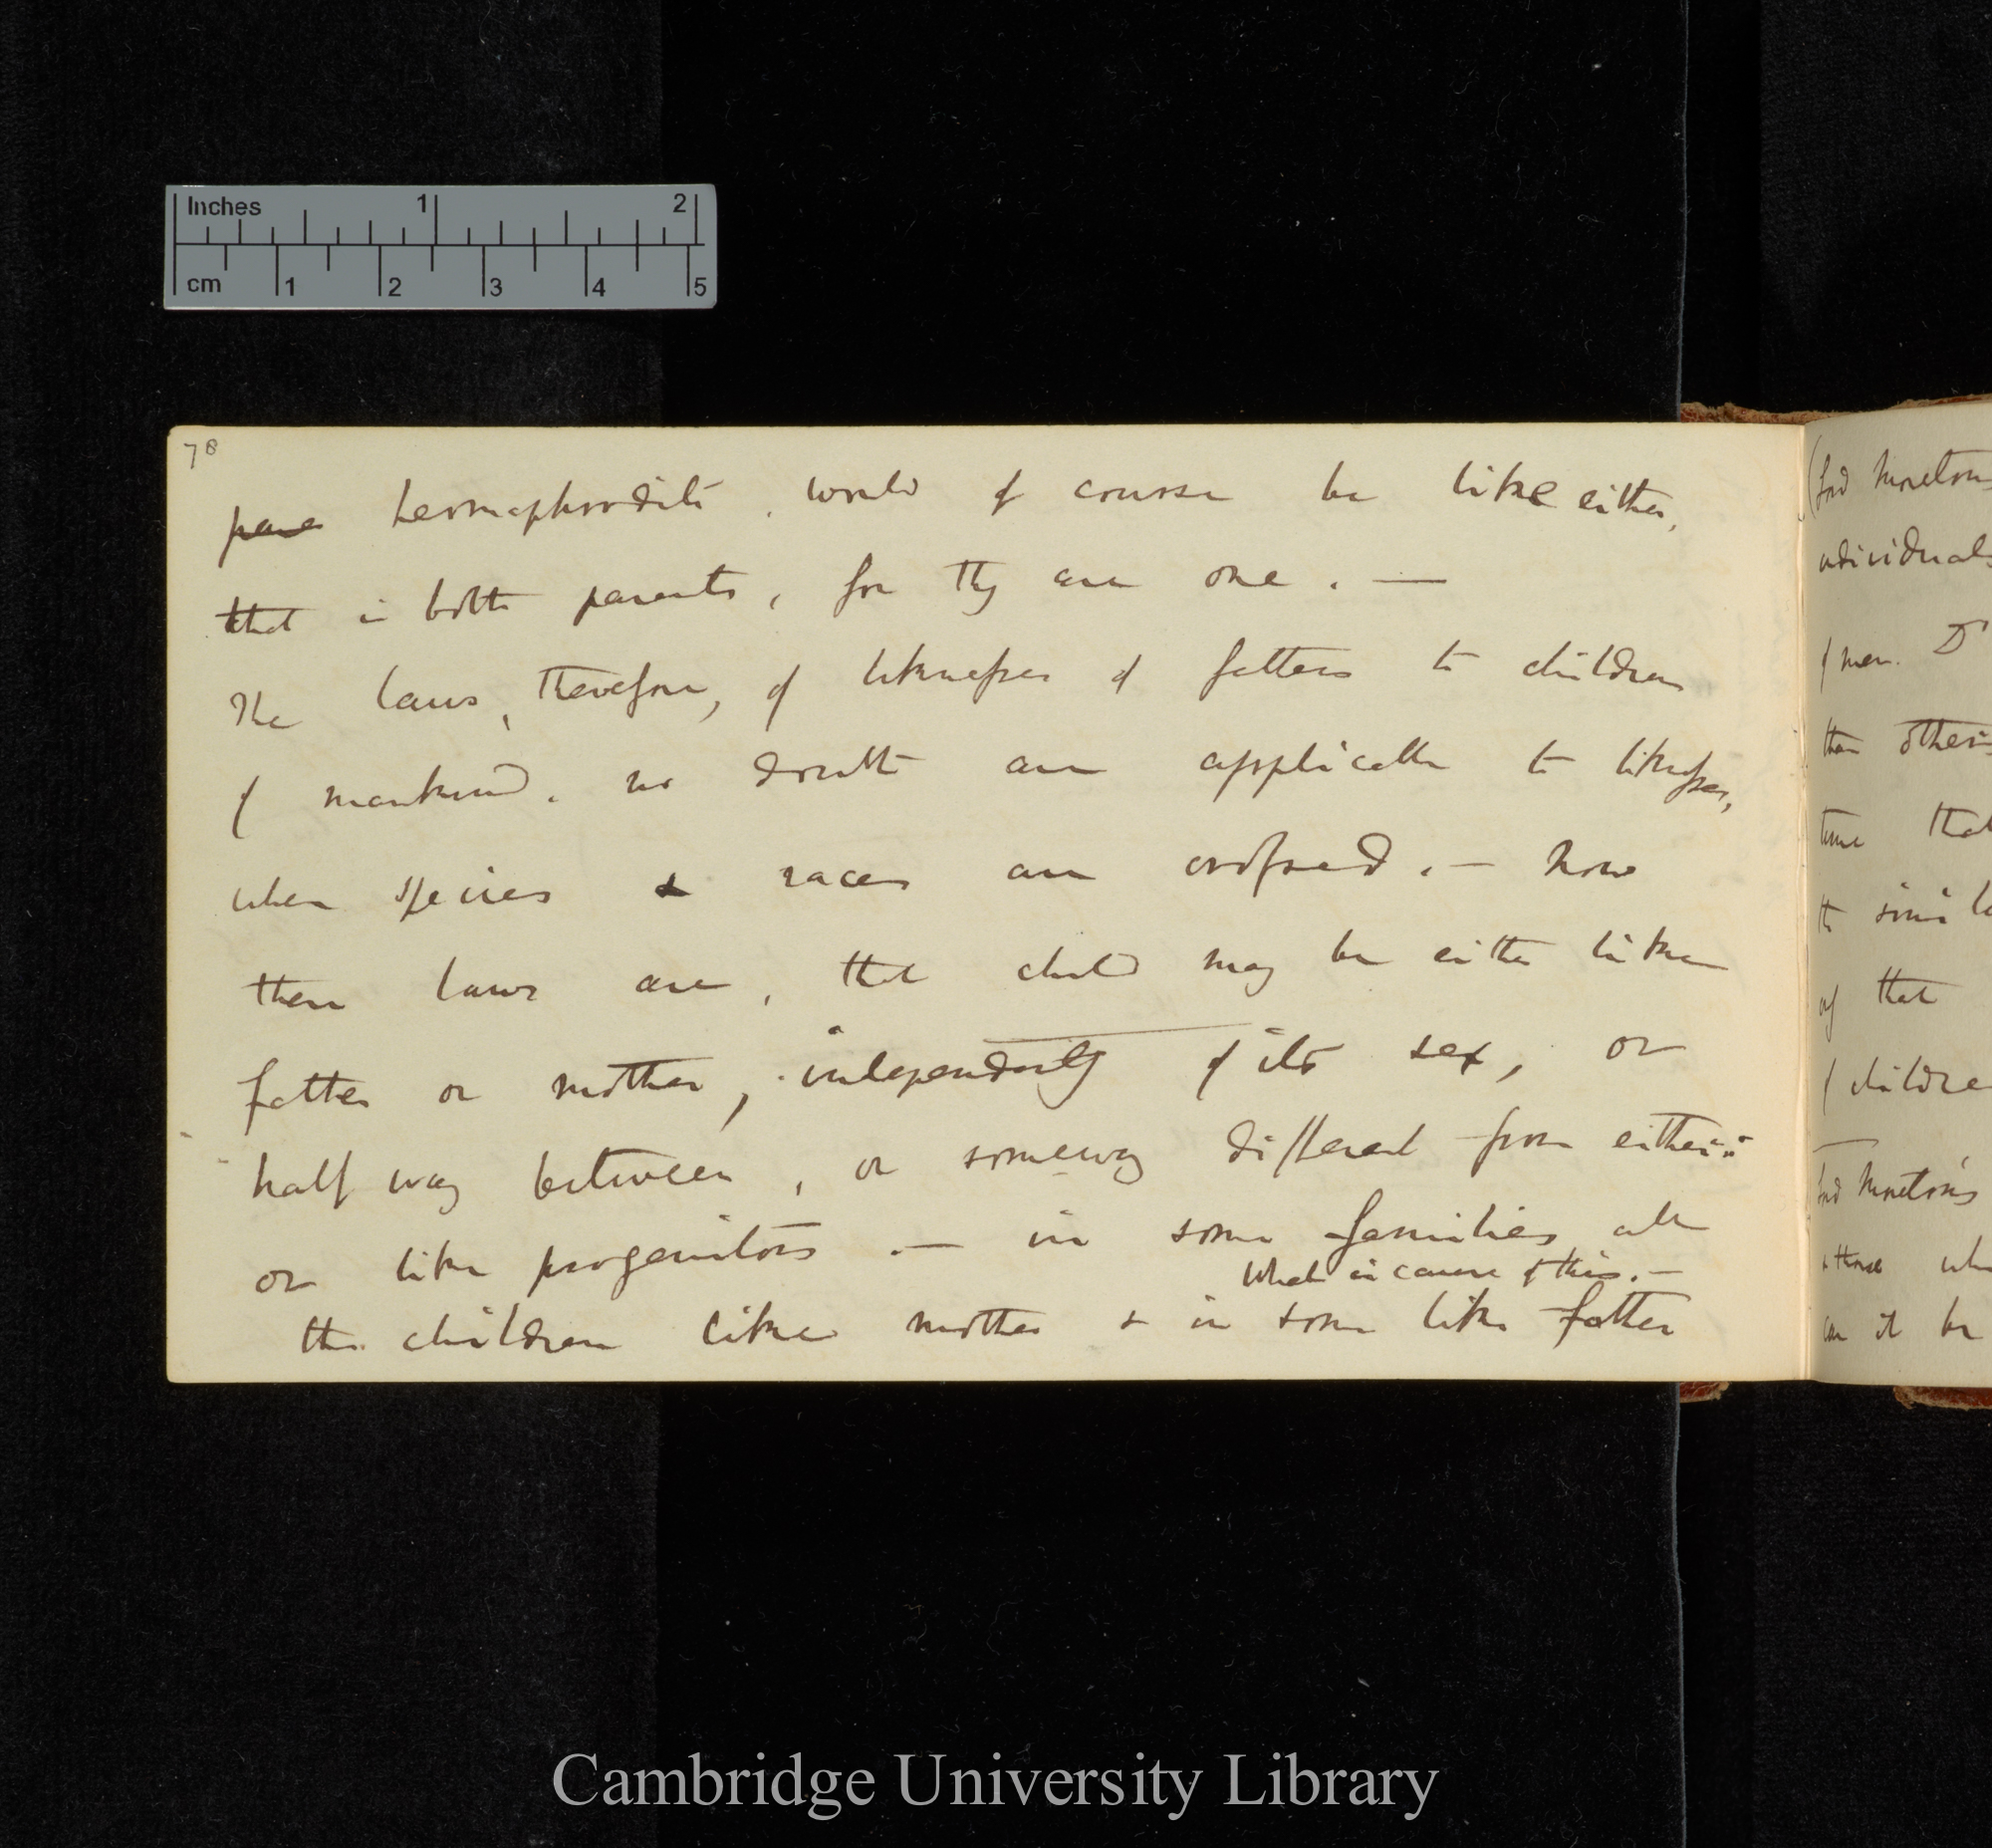 Inches 1 2
cm 1 2 3 4 5
78
hermaphrodite, would of course be like either,
that is both parents, for they are one. —
The laws, therefore, of likenesses of fathers to children
of mankind. no doubt are applicable to likenesses,
when species & races are crossed. — Now
these laws are, that child may be either like
father or mother, independently of its sex, or
half way between, or someway different from either:
or like progenitors. — in some families all
What is cause of this. —
the children like mother & in some like father
(Lord Moreton
individuals
of man. Dr
than others
time that
the
of that
of children
Lord Moreton's
& those
can it be
Cambridge University Library